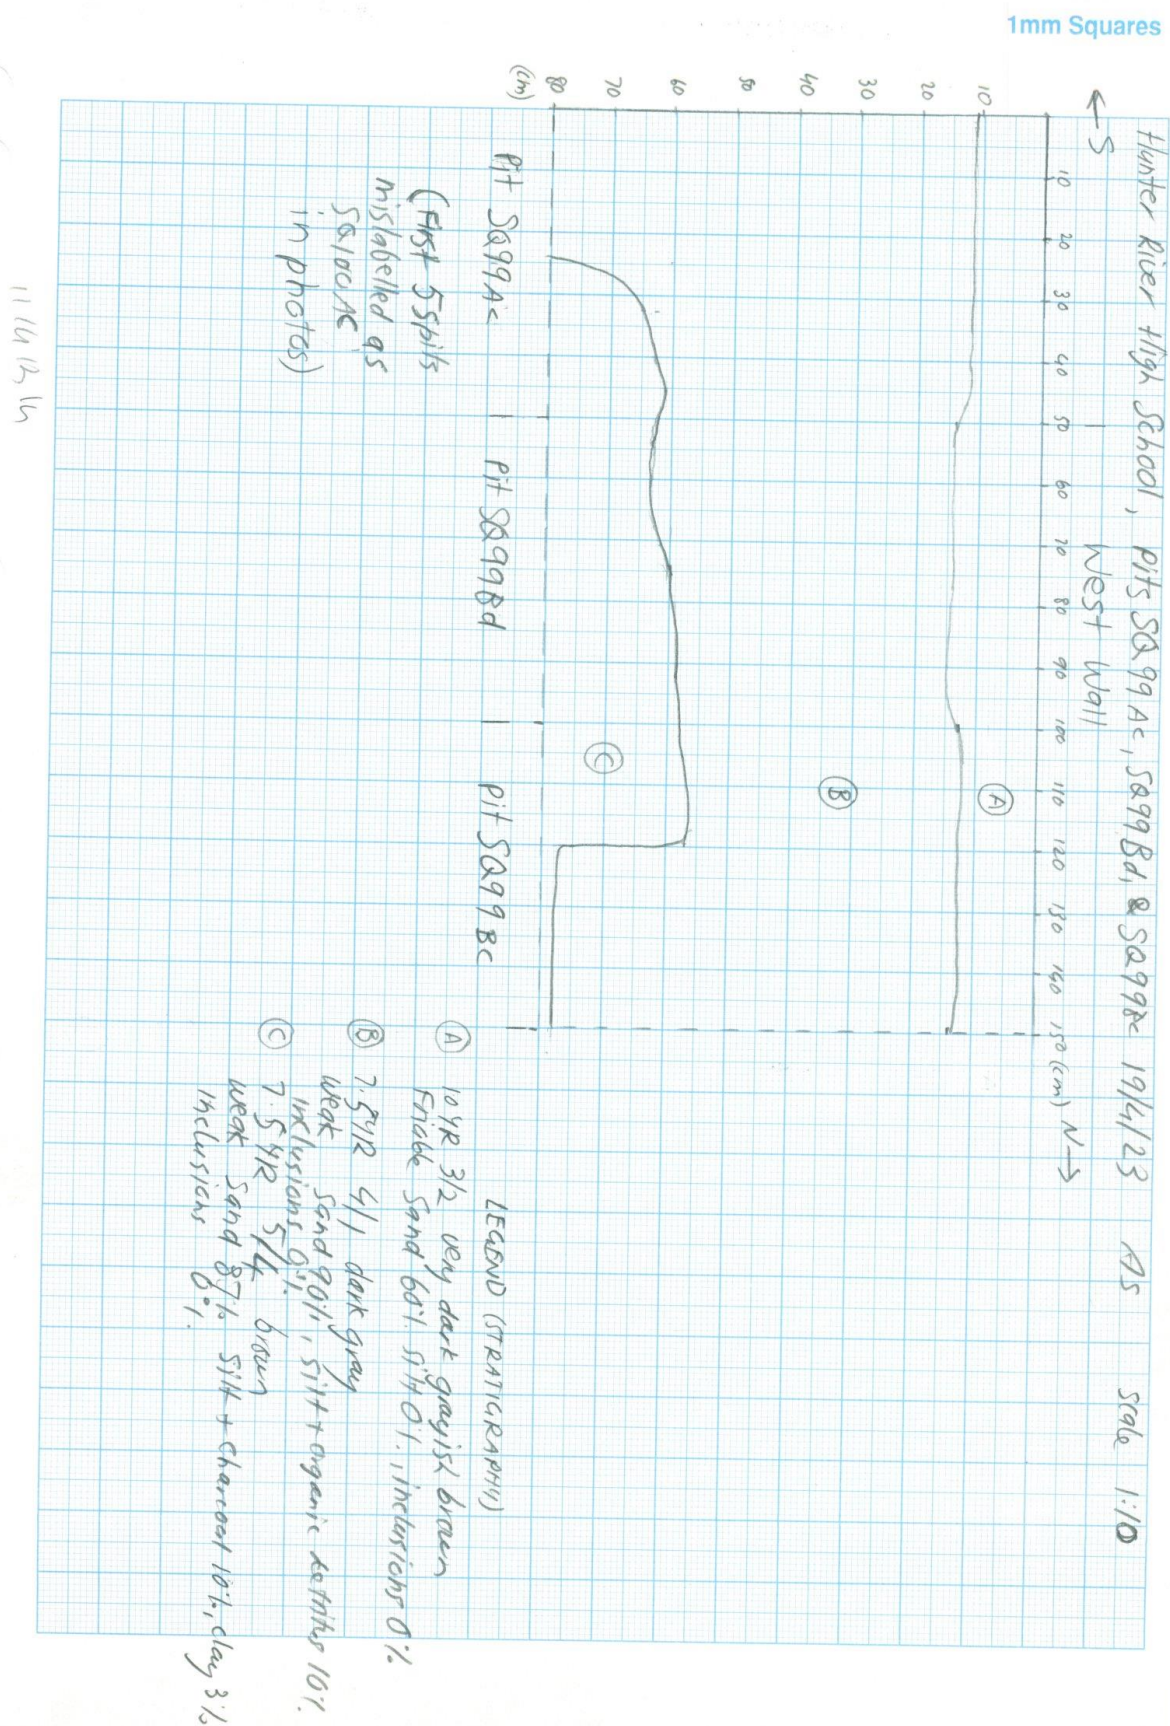 1mm Squares
Hunter River High School, pits SQ99Ac, SQ99Bd, & SQ99Bc 19/4/23 AS scale 1:10
←S West Wall N→
10 20 30 40 50 60 70 80 90 100 110 120 130 140 150 (cm)
10
20
30
40
50
60
70
80
(cm)
A
B
C
Pit SQ99Ac Pit SQ99Bd pit SQ99Bc
(First 5 spits
mislabelled as
SQ100AC
in photos)
LEGEND (STRATIGRAPHY)
A 10YR 3/2 very dark grayish brown
Friable Sand 60% silt 0%, inclusions 0%
B 7.5YR 4/1 dark gray
weak sand 90%, silt + organic detritus 10%
inclusions 0%
C 7.5YR 5/4 brown
weak sand 87% silt + charcoal 10%, clay 3%
inclusions 0%